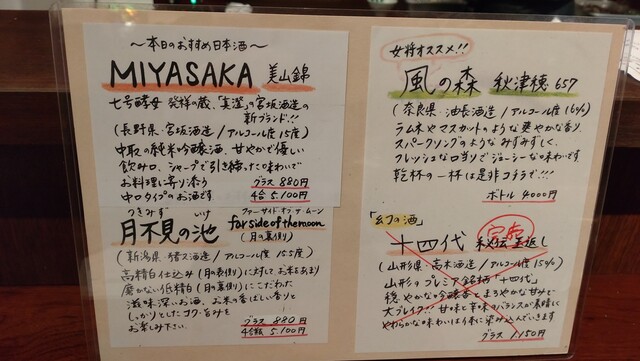 〜本日のおすすめ日本酒〜
MIYASAKA 美山錦
七号酵母 発祥の蔵、「真澄」の宮坂酒造の
新ブランド!!
(長野県・宮坂酒造/アルコール度15度)
中取の純米吟醸酒、甘やかで優しい
飲み口、シャープで引き締まった味わいで
お料理に寄り添う
中口タイプのお酒です
グラス 880円
4合 5.100円
つきみず いけ
月不見の池
ファーサイド オブ ザ ムーン
far side of the moon
(月の裏側)
(新潟県・猪又酒造/アルコール度 15.5度)
高精白仕込み(月の表側)に対して、お米をあまり
磨かない低精白(月の裏側)にこだわった
滋味深いお酒。お米の香ばしい香りと
しっかりとしたコク・旨みを
お楽しみ下さい。
グラス 880円
4合瓶 5.100円
女将オススメ!!
風の森 秋津穂 657
(奈良県・油長酒造/アルコール度 16%)
ラムネやマスカットのような爽やかな香り、
スパークリングのような みずみずしく、
フレッシュな口当りでジューシーな味わいです
乾杯の一杯は是非コチラで!!!
ボトル 4000円
「幻の酒」
十四代 秘伝玉返し
完売
(山形県・高木酒造/アルコール度 15%)
山形のプレミア銘柄「十四代」
穏やかな吟醸香とまろやかな甘みで
大ブレイク!! 甘味と辛味のバランスが素晴しく
やわらかな味わいは体に染み込んでいきます
グラス 1.150円